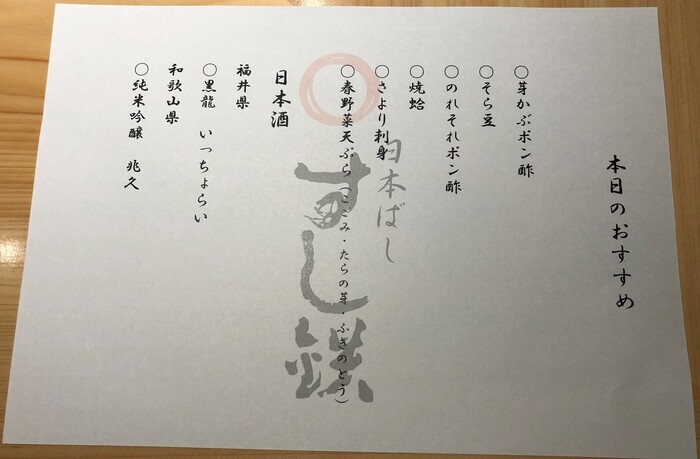 本日のおすすめ
○芽かぶポン酢
○そら豆
○のれそれポン酢
○焼蛤
○さより刺身
○春野菜天ぷら（こごみ・たらの芽・ふきのとう）
日本酒
福井県
○黒龍　いっちょらい
和歌山県
○純米吟醸　兆久
日本ばし
すし鉄